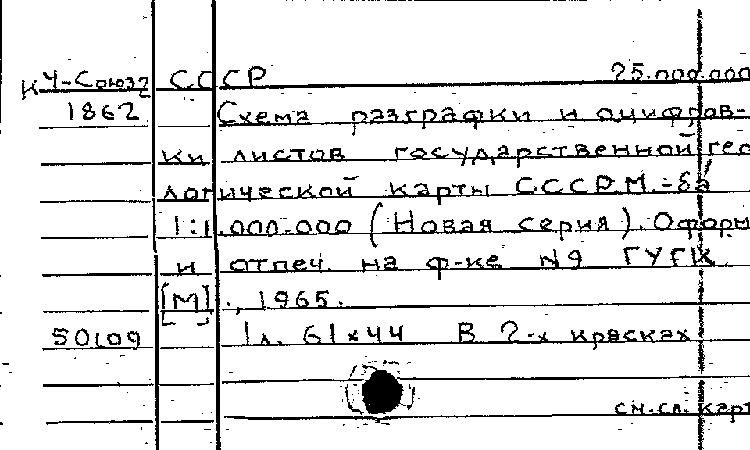 К Ч-Союз2 СССР 25.000.000
1862 Схема разграфки и оцифров-
ки листов государственной гео
логической карты СССР М.-ба
1:1.000.000 (Новая серия). Оформ
и отпеч. на ф-ке №9 ГУГК
[М]., 1965.
50109 1л. 61х44 В 2-х красках
см.сл. карт